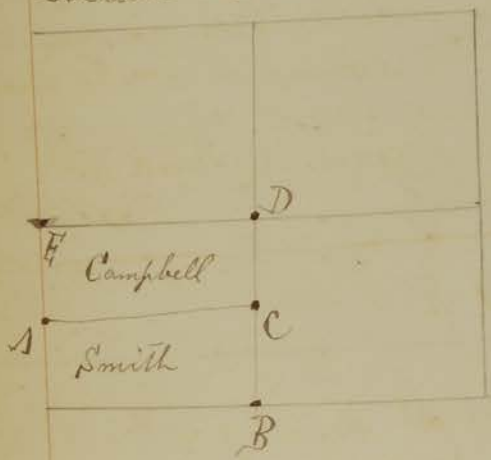 D
E
Campbell
A
C
Smith
B